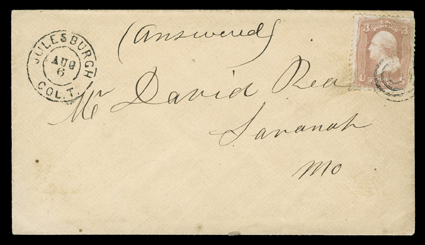 (Answered)
JULESBURGH
AUG
6
COL.T.
3 3
Mr David Rea
Savanah
Mo